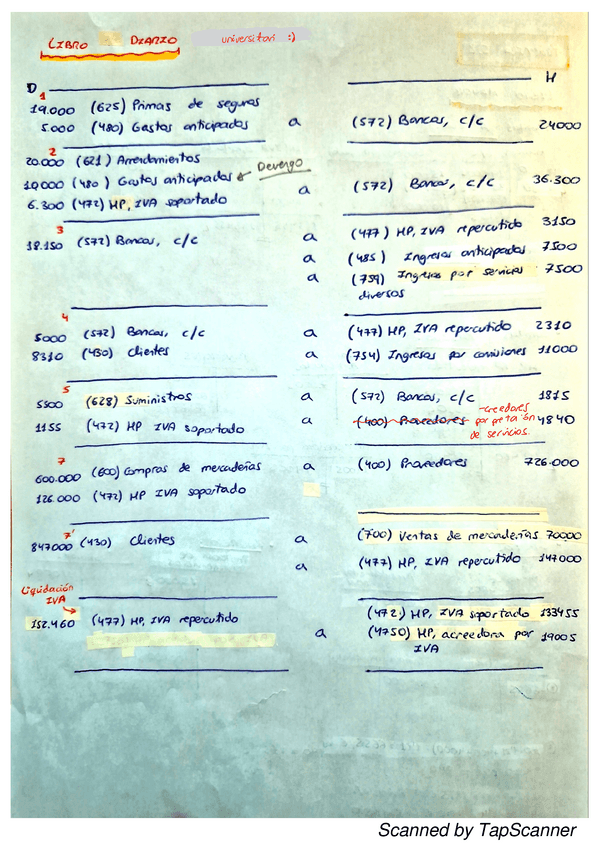 LIBRO DIARIO universitari :)
D H
1
19.000 (625) Primas de seguros
5.000 (480) Gastos anticipados a (572) Bancos, c/c 24000
2
20.000 (621) Arrendamientos
10.000 (480) Gastos anticipados Devengo a (572) Bancos, c/c 36.300
6.300 (472) HP, IVA soportado
3
18.150 (572) Bancos, c/c a (477) HP, IVA repercutido 3150
a (485) Ingresos anticipados 7500
a (759) Ingresos por servicios 7500
diversos
4
5000 (572) Bancos, c/c a (477) HP, IVA repercutido 2310
8310 (430) Clientes a (754) Ingresos por comisiones 11000
5
5500 (628) Suministros a (572) Bancos, c/c 1815
1155 (472) HP IVA soportado a (400) Proveedores 4840
-creedores
por pretación
de servicios.
7
600.000 (600) Compras de mercaderías a (400) Proveedores 726.000
126.000 (472) HP IVA soportado
7'
847000 (430) Clientes a (700) Ventas de mercaderías 70000
a (477) HP, IVA repercutido 147000
Liquidación
IVA
152.460 (477) HP, IVA repercutido (472) HP, IVA soportado 133455
a (4750) HP, acreedora por 19005
IVA
Scanned by TapScanner